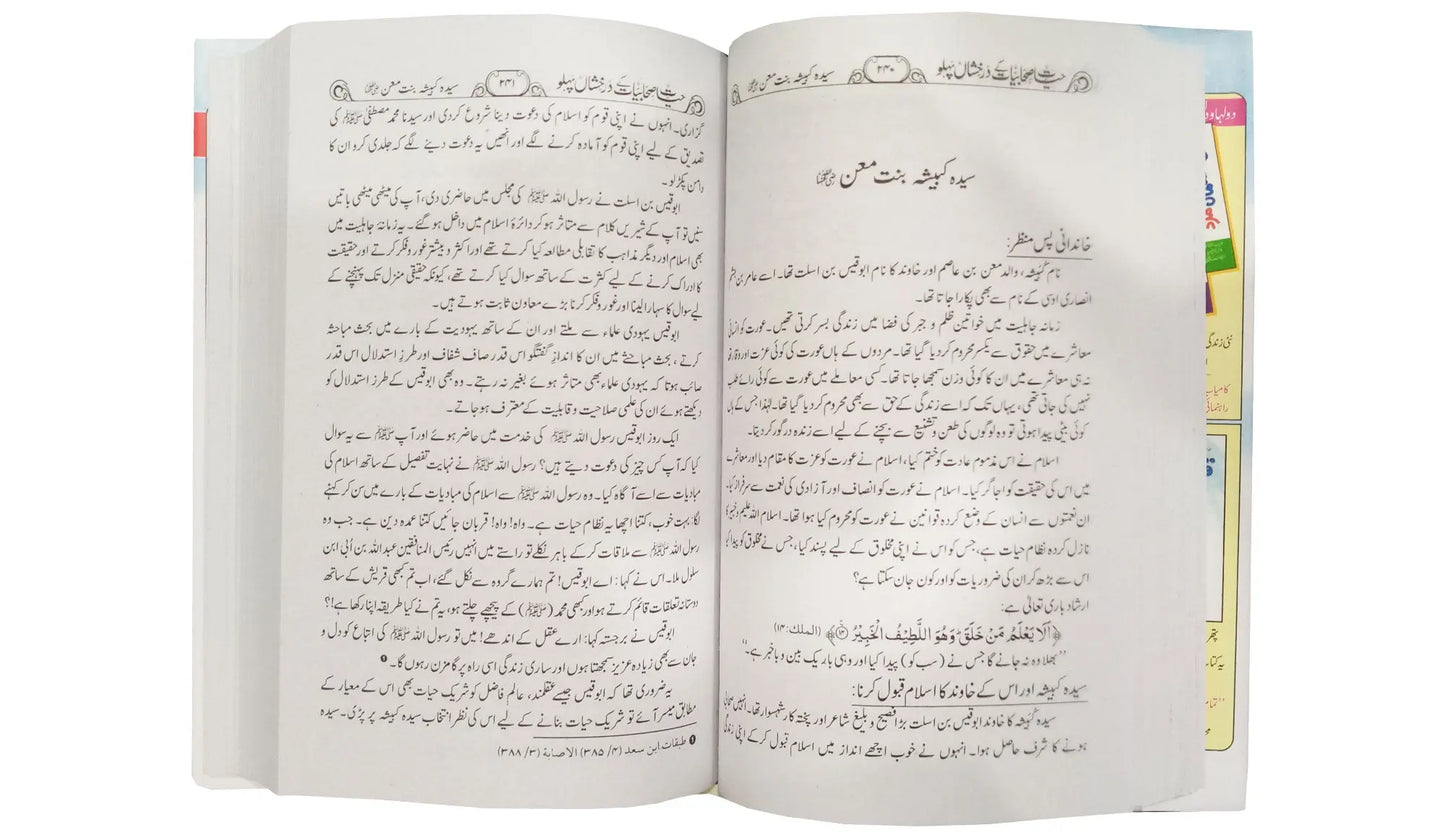 حیات صحابیات کے درخشاں پہلو ۲۴۰ سیدہ کبیشہ بنت معن رضی اللہ عنہا
سیدہ کبیشہ بنت معن رضی اللہ عنہا
خاندانی پس منظر:
نام کبیشہ، والد معن بن عاصم اور خاوند کا نام ابوقیس بن اسلت تھا۔ اسے عامر بن جشم
انصاری اوسی کے نام سے بھی پکارا جاتا تھا۔
زمانہ جاہلیت میں خواتین ظلم و جبر کی فضا میں زندگی بسر کرتی تھیں۔ عورت کو انسانی
معاشرے میں حقوق سے یکسر محروم کر دیا گیا تھا۔ مردوں کے ہاں عورت کی کوئی عزت اور وقار نہ تھا
نہ ہی معاشرے میں ان کا کوئی وزن سمجھا جاتا تھا۔ کسی معاملے میں عورت سے کوئی رائے طلب
نہیں کی جاتی تھی، یہاں تک کہ اسے زندگی کے حق سے بھی محروم کر دیا گیا تھا۔ لہٰذا جس کے ہاں
کوئی بیٹی پیدا ہوتی تو وہ لوگوں کی طعن و تشنیع سے بچنے کے لیے اسے زندہ درگور کر دیتا۔
اسلام نے اس مذموم عادت کو ختم کیا، اسلام نے عورت کو عزت کا مقام دیا اور معاشرے
میں اس کی حقیقت کو اجاگر کیا۔ اسلام نے عورت کو انصاف اور آزادی کی نعمت سے سرفراز کیا۔
ان نعمتوں سے انسان کے وضع کردہ قوانین نے عورت کو محروم کیا ہوا تھا۔ اسلام اللہ علیم و خبیر کا
نازل کردہ نظام حیات ہے، جس کو اس نے اپنی مخلوق کے لیے پسند کیا، جس نے مخلوق کو پیدا کیا
اس سے بڑھ کر ان کی ضروریات کو اور کون جان سکتا ہے؟
ارشاد باری تعالیٰ ہے:
﴿اَلَا یَعْلَمُ مَنْ خَلَقَ ؕ وَهُوَ اللَّطِیْفُ الْخَبِیْرُ ۝۱۴﴾ (الملک:۱۴)
”بھلا وہ نہ جانے گا جس نے (سب کو) پیدا کیا اور وہی باریک بین و باخبر ہے۔“
سیدہ کبیشہ اور اس کے خاوند کا اسلام قبول کرنا:
سیدہ کبیشہ کا خاوند ابوقیس بن اسلت بڑا فصیح و بلیغ شاعر اور پختہ کار شہسوار تھا۔ انہیں صحابی
ہونے کا شرف حاصل ہوا۔ انہوں نے خوب اچھے انداز میں اسلام قبول کر کے اپنی زندگی
حیات صحابیات کے درخشاں پہلو ۲۴۱ سیدہ کبیشہ بنت معن رضی اللہ عنہا
گزاری۔ انہوں نے اپنی قوم کو اسلام کی دعوت دینا شروع کر دی اور سیدنا محمد مصطفیٰ ﷺ کی
تصدیق کے لیے اپنی قوم کو آمادہ کرنے لگے اور انھیں یہ دعوت دینے لگے کہ جلدی کرو ان کا
دامن پکڑ لو۔
ابوقیس بن اسلت نے رسول اللہ ﷺ کی مجلس میں حاضری دی، آپ کی میٹھی میٹھی باتیں
سنیں تو آپ کے شیریں کلام سے متاثر ہو کر دائرۂ اسلام میں داخل ہو گئے۔ یہ زمانۂ جاہلیت میں
بھی اسلام اور دیگر مذاہب کا تقابلی مطالعہ کیا کرتے تھے اور اکثر و بیشتر غور و فکر کرتے اور حقیقت
کا ادراک کرنے کے لیے کثرت کے ساتھ سوال کیا کرتے تھے، کیونکہ حقیقی منزل تک پہنچنے کے
لیے سوال کا سہارا لینا اور غور و فکر کرنا بڑے معاون ثابت ہوتے ہیں۔
ابوقیس یہودی علماء سے ملتے اور ان کے ساتھ یہودیت کے بارے میں بحث مباحثہ
کرتے، بحث مباحثے میں ان کا اندازِ گفتگو اس قدر صاف شفاف اور طرزِ استدلال اس قدر
صائب ہوتا کہ یہودی علماء بھی متاثر ہوئے بغیر نہ رہتے۔ وہ بھی ابوقیس کے طرز استدلال کو
دیکھتے ہوئے ان کی علمی صلاحیت و قابلیت کے معترف ہو جاتے۔
ایک روز ابوقیس رسول اللہ ﷺ کی خدمت میں حاضر ہوئے اور آپ ﷺ سے یہ سوال
کیا کہ آپ کس چیز کی دعوت دیتے ہیں؟ رسول اللہ ﷺ نے نہایت تفصیل کے ساتھ اسلام کی
مبادیات سے اسے آگاہ کیا۔ وہ رسول اللہ ﷺ سے اسلام کی مبادیات کے بارے میں سن کر کہنے
لگا: بہت خوب، کتنا اچھا یہ نظام حیات ہے۔ واہ! واہ! قربان جائیں کتنا عمدہ دین ہے۔ جب وہ
رسول اللہ ﷺ سے ملاقات کر کے باہر نکلے تو راستے میں انہیں رئیس المنافقین عبداللہ بن اُبی ابن
سلول ملا۔ اس نے کہا: اے ابوقیس! تم ہمارے گروہ سے نکل گئے، اب تم کبھی قریش کے ساتھ
دوستانہ تعلقات قائم کرتے ہو اور کبھی محمد (ﷺ) کے پیچھے چلتے ہو، یہ تم نے کیا طریقہ اپنا رکھا ہے!؟
ابوقیس نے برجستہ کہا: ارے عقل کے اندھے! میں تو رسول اللہ ﷺ کی اتباع کو دل و
جان سے بھی زیادہ عزیز سمجھتا ہوں اور ساری زندگی اسی راہ پر گامزن رہوں گا۔ ❶
یہ ضروری تھا کہ ابوقیس جیسے عقلمند، عالم فاضل کو شریک حیات بھی اس کے معیار کے
مطابق میسر آئے تو شریک حیات بنانے کے لیے اس کی نظر انتخاب سیدہ کبیشہ پر پڑی۔ سیدہ
❶ طبقات ابن سعد (۴/ ۳۸۵) الاصابة (۳/ ۳۸۸)